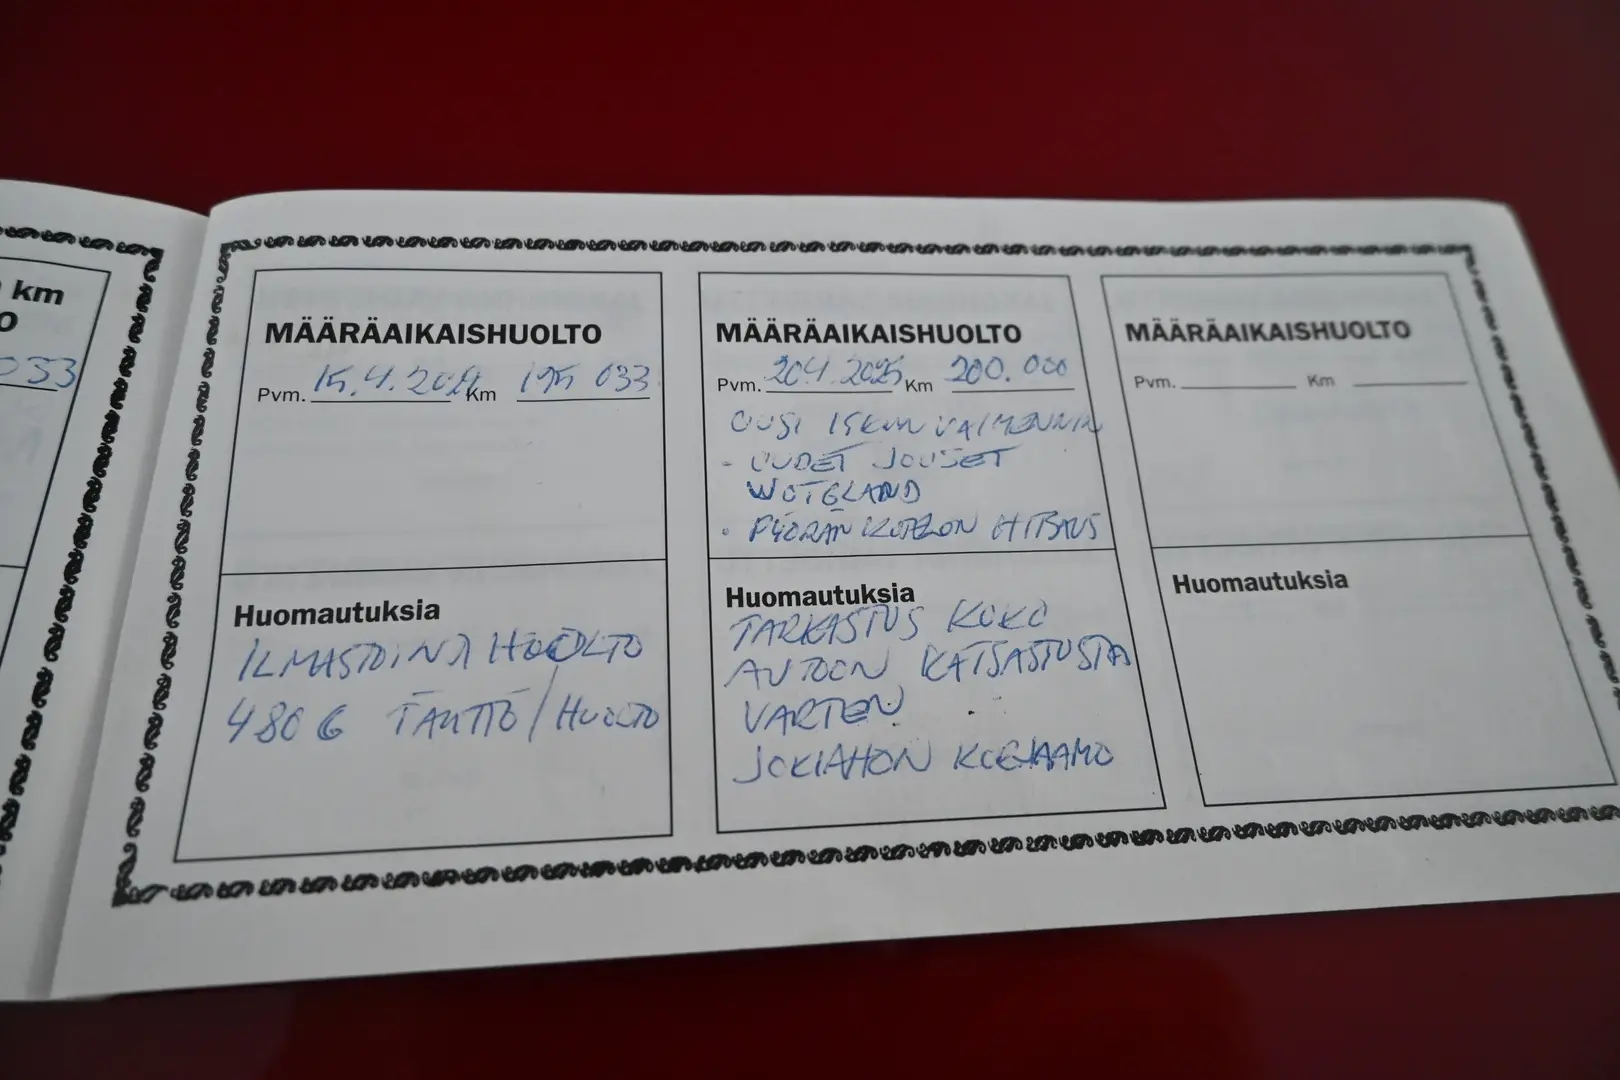 km
O
033
MÄÄRÄAIKAISHUOLTO
Pvm. 15.4. Km 195 033
Huomautuksia
ILMASTOINTI HUOLTO
480 G TÄYTTÖ / HUOLTO
MÄÄRÄAIKAISHUOLTO
Pvm. 20.4.2025 Km 200.000
UUSI ISKUNVAIMENNIN
- UUDET JOUSET
- PYÖRÄN KOTELON HITSAUS
Huomautuksia
TARKASTUS KOKO
AUTOON KATSASTUSTA
VARTEN
JOKIAHON KORJAAMO
MÄÄRÄAIKAISHUOLTO
Pvm. Km
Huomautuksia